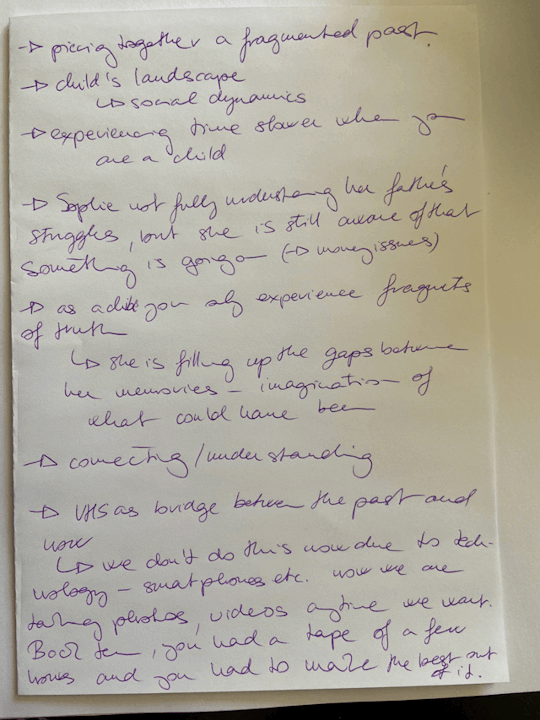 → piecing together a fragmented past.
→ child's landscape
↳ social dynamics
→ experiencing time slower when you
are a child
→ Sophie not fully understanding her father's
struggles, but she is still aware of that
something is going on (→ money issues)
→ as a child you only experience fragments
of truth
↳ she is filling up the gaps between
her memories – imagination of
what could have been
→ connecting / understanding
→ VHS as bridge between the past and
now
↳ we don't do this now due to tech-
nology – smartphones etc. now we are
taking photos, videos anytime we want.
Back then, you had a tape of a few
hours and you had to make the best out
of it.